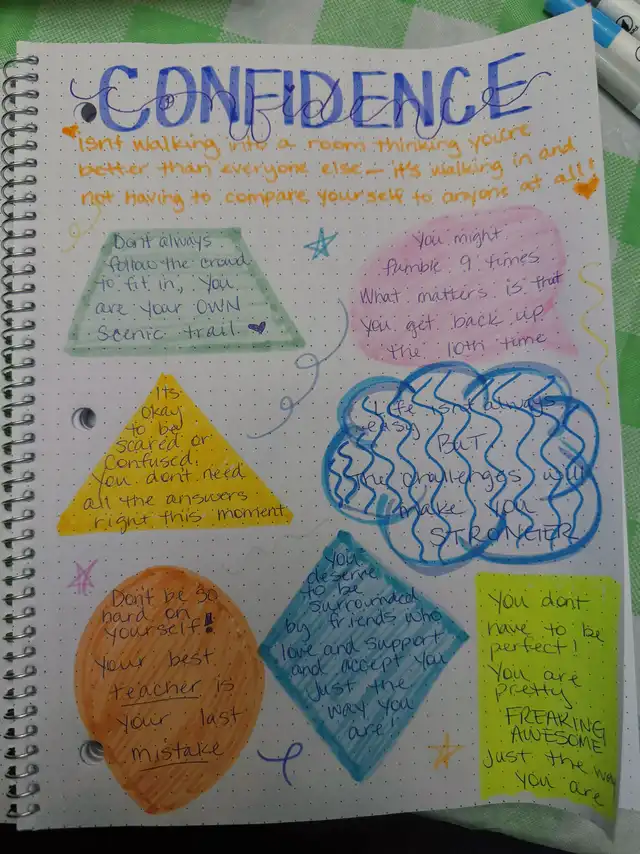 CONFIDENCE
Confidence
isnt walking into a room thinking you're
better than everyone else — it's walking in and
not having to compare yourself to anyone at all!
Dont always
follow the crowd
to fit in, you
are your OWN
scenic trail
You might
fumble 9 times
What matters is that
you get back up
the 10th time
Its
okay
to be
scared or
confused.
You don't need
all the answers
right this moment
Life isn't always
easy
BUT,
The challenges will
make you
STRONGER
Don't be so
hard on
yourself!
Your best
teacher is
your last
mistake
You
deserve
to be
surrounded
by friends who
love and support
and accept you
just the
way you
are!
You dont
have to be
perfect!
You are
pretty
FREAKING
AWESOME
just the way
you are